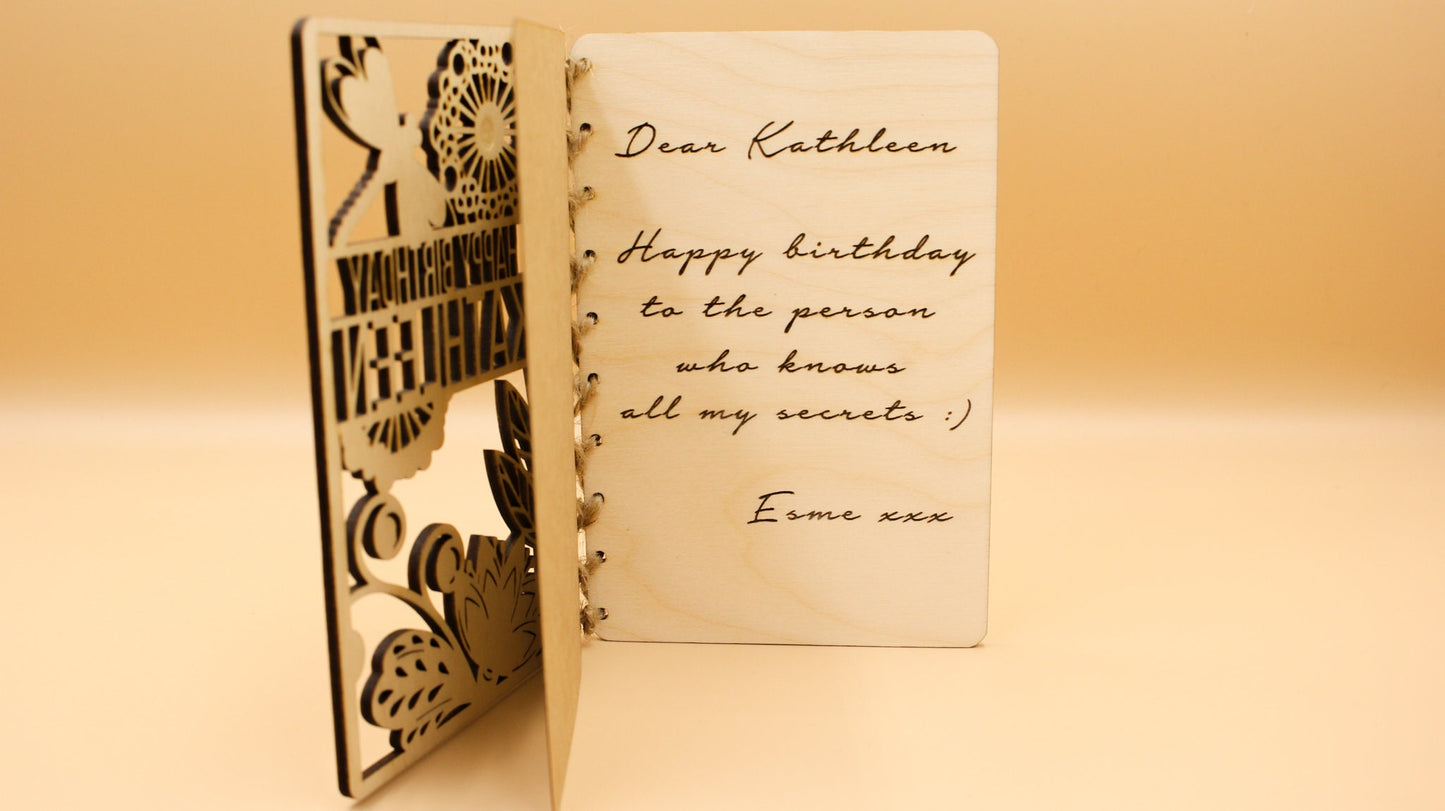 HAPPY BIRTHDAY
KATHLEEN
Dear Kathleen
Happy birthday
to the person
who knows
all my secrets :)
Esme xxx